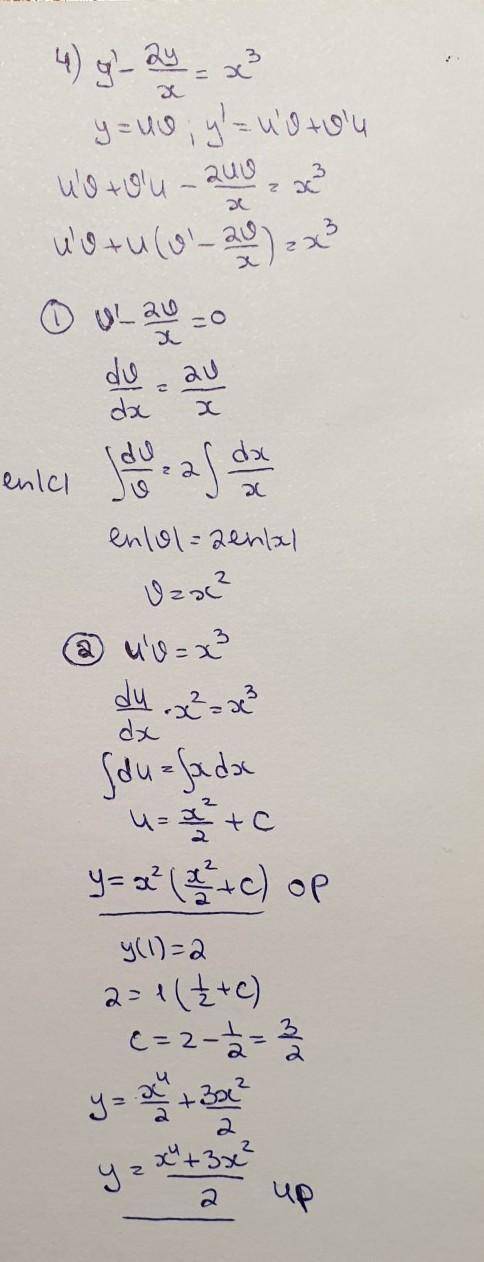 4) y' - 2y/x = x³
y = uv ; y' = u'v + v'u
u'v + v'u - 2uv/x = x³
u'v + u(v' - 2v/x) = x³
① v' - 2v/x = 0
dv/dx = 2v/x
ln|c| ∫dv/v = 2∫dx/x
ln|v| = 2ln|x|
v = x²
② u'v = x³
du/dx · x² = x³
∫du = ∫x dx
u = x²/2 + C
y = x²(x²/2 + C) ОР
y(1) = 2
2 = 1(1/2 + C)
C = 2 - 1/2 = 3/2
y = x⁴/2 + 3x²/2
y = (x⁴ + 3x²)/2 ЧР